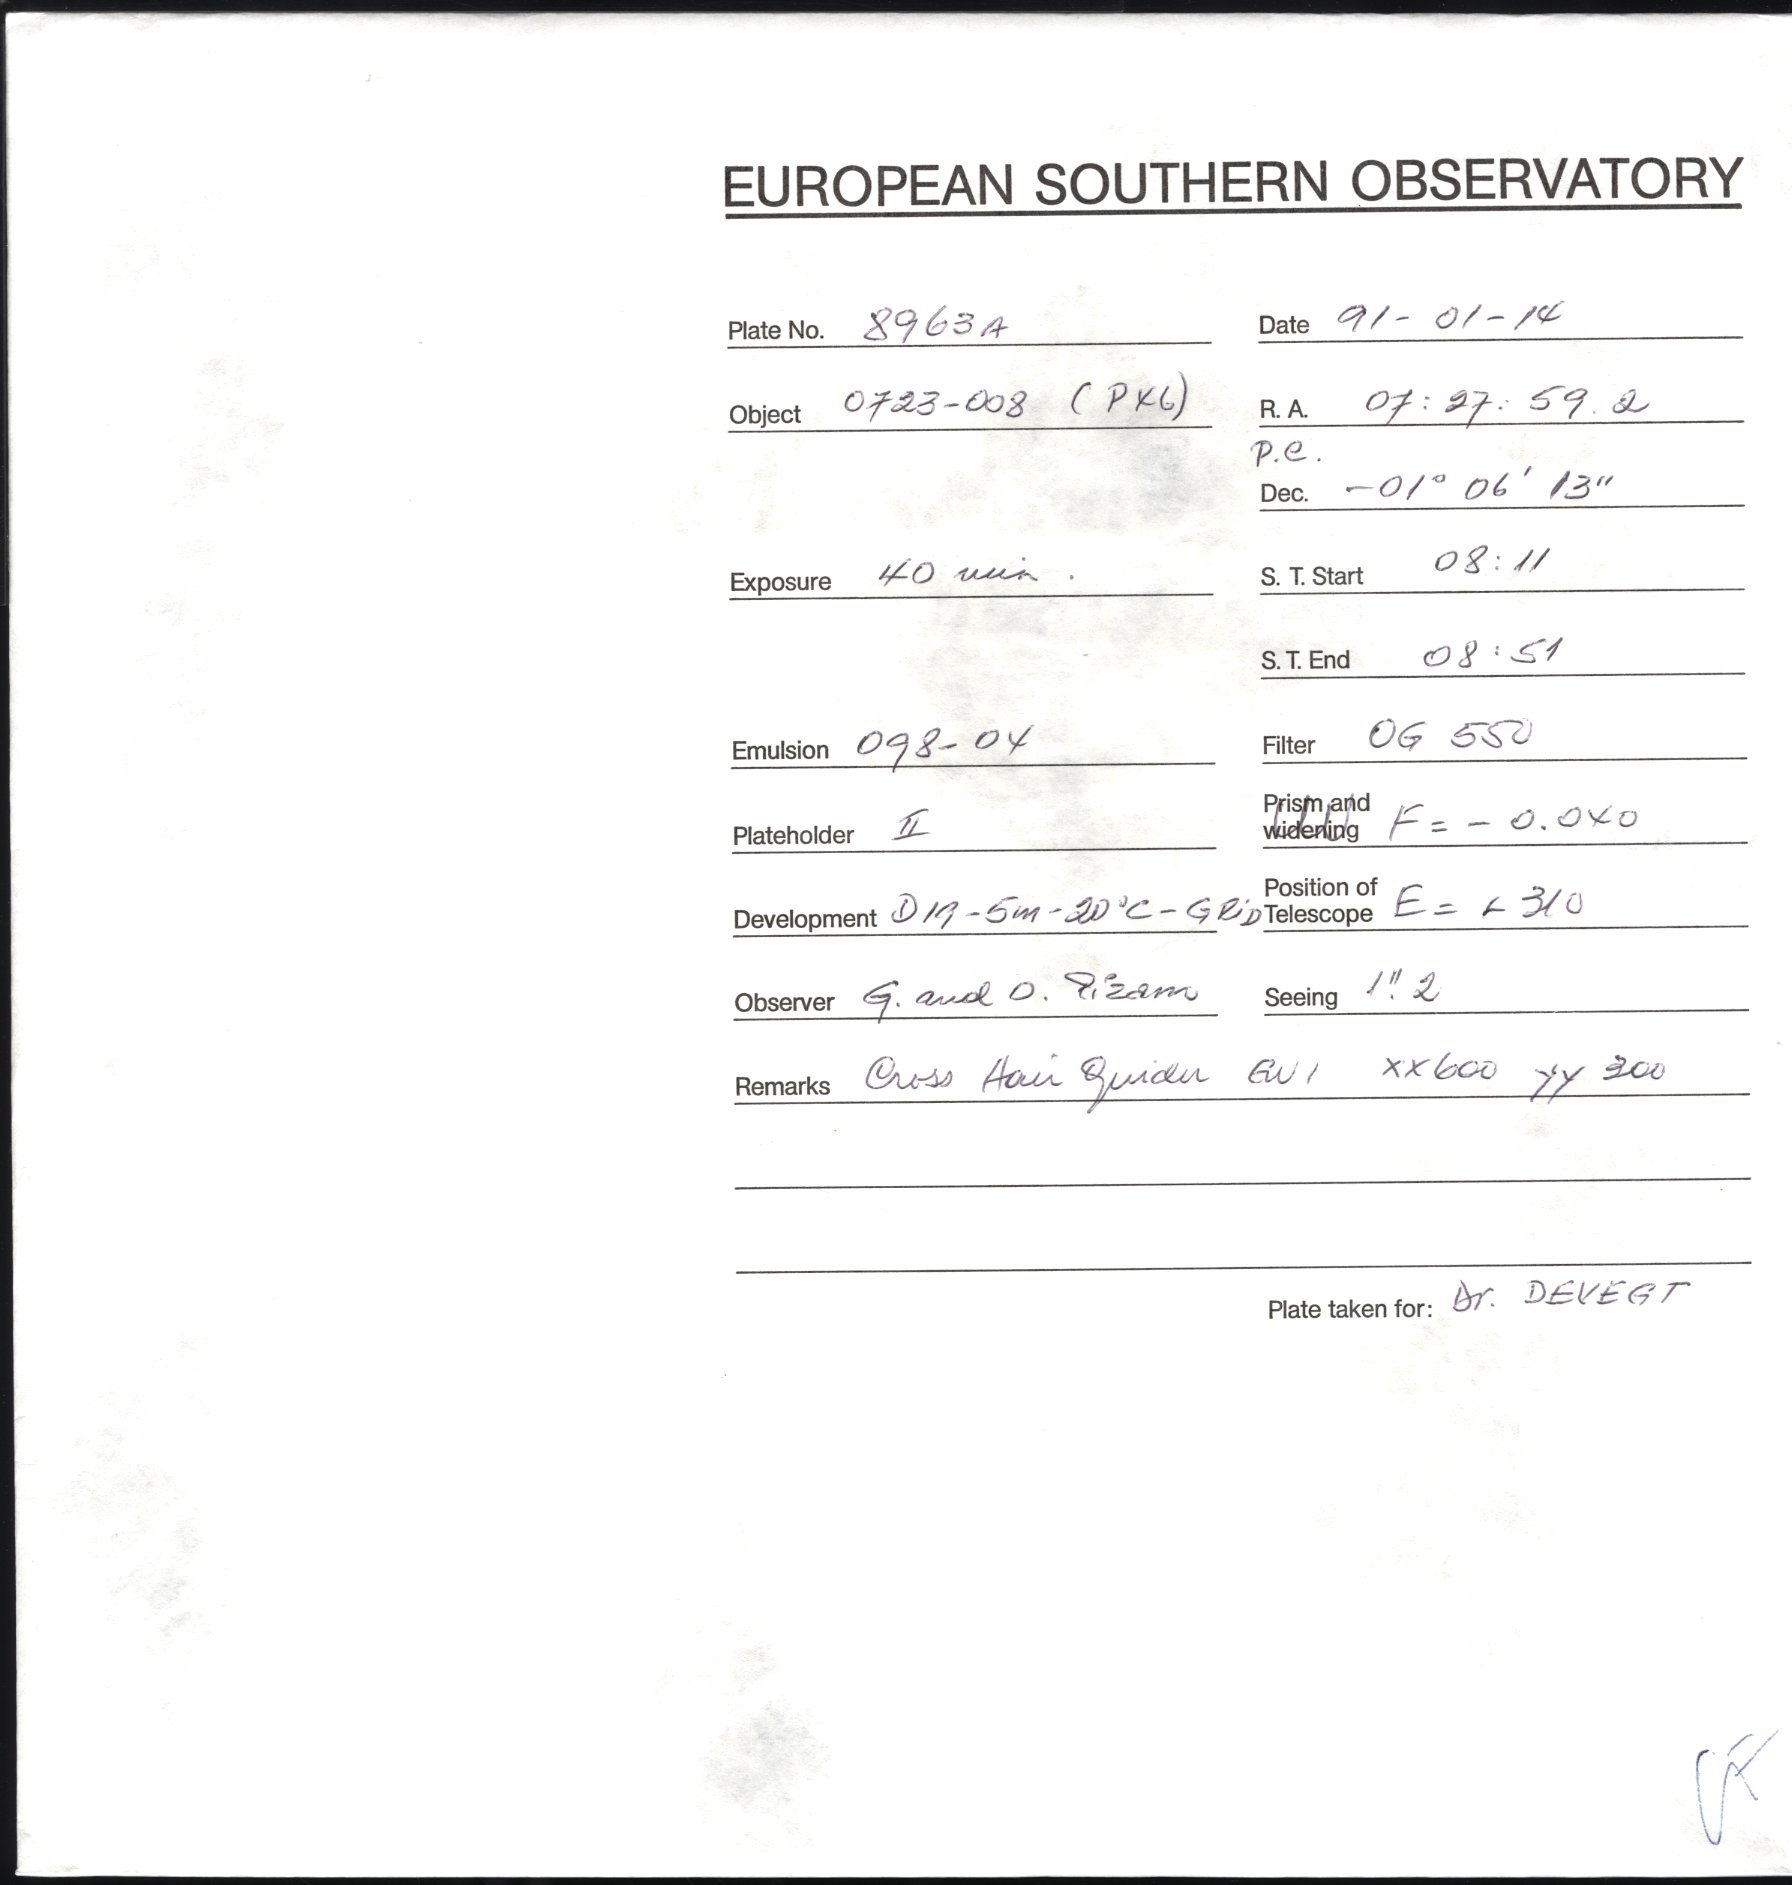 EUROPEAN SOUTHERN OBSERVATORY
Plate No. 8963A Date 91-01-14
Object 0723-008 (PX6) R. A. 07:27:59.2
P.C.
Dec. -01° 06' 13"
Exposure 40 min. S. T. Start 08:11
S. T. End 08:51
Emulsion 098-04 Filter OG 550
Prism and
Plateholder II widening F = - 0.040
Position of
Development D19-5m-20°C-GRID Telescope E = + 310
Observer G. and O. Pizarro Seeing 1".2
Remarks Cross Hair Guider XX600 YY 300
Plate taken for: Dr. DEVEGT